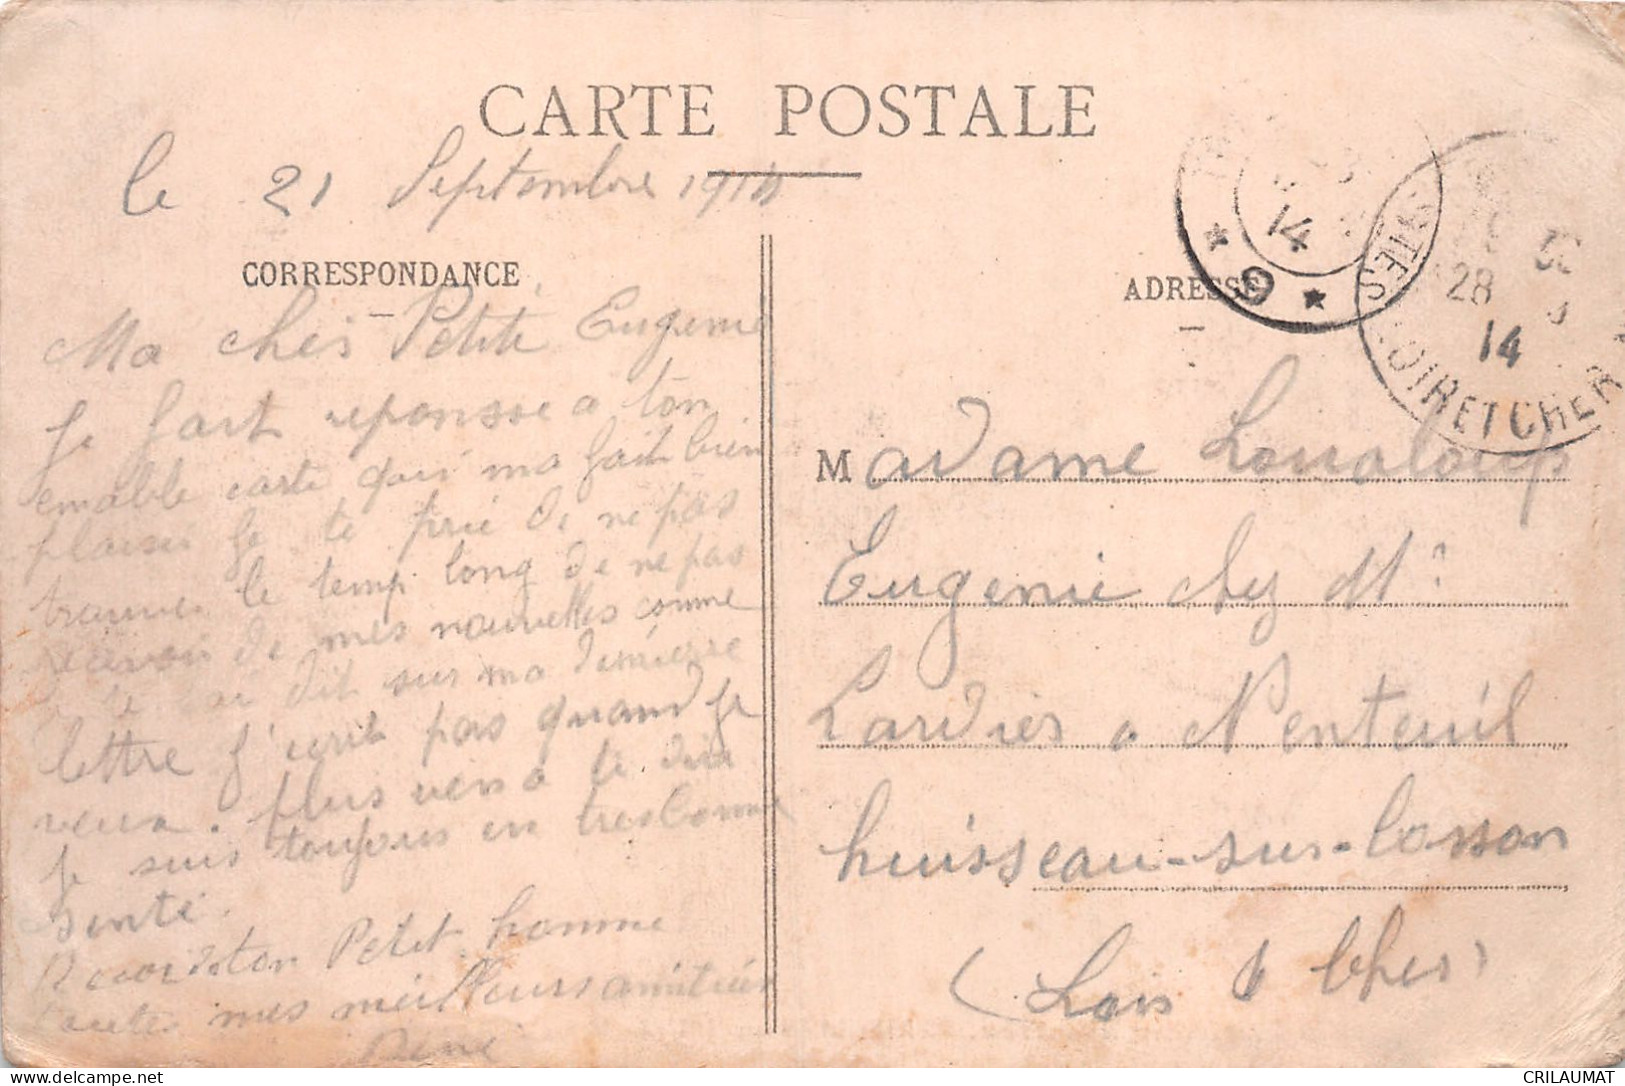 CARTE POSTALE
le 21 Septembre 1914
CORRESPONDANCE
Ma cher Petite Eugenie
Je fait reponsse a ton
emable carte qui ma fait bien
plaisir je te prie de ne pas
trouver le temp long de ne pas
recevoir de mes nouvelles comme
je te sai dit sur ma derniere
lettre j'ecrit pas quand je
veux. plus rien a te dire
je suis toujours en tres bonne
sente.
Recoi de ton Petit homme
toutes mes meilleurs amitries
René
ADRESSE
Madame Loualoup
Eugenie chez Mr
Lardier a Nenteuil
huisseau-sur-Cosson
(Loir & Cher)
14
* 9 *
POSTES
28
14
LOIR ET CHER
CRILAUMAT